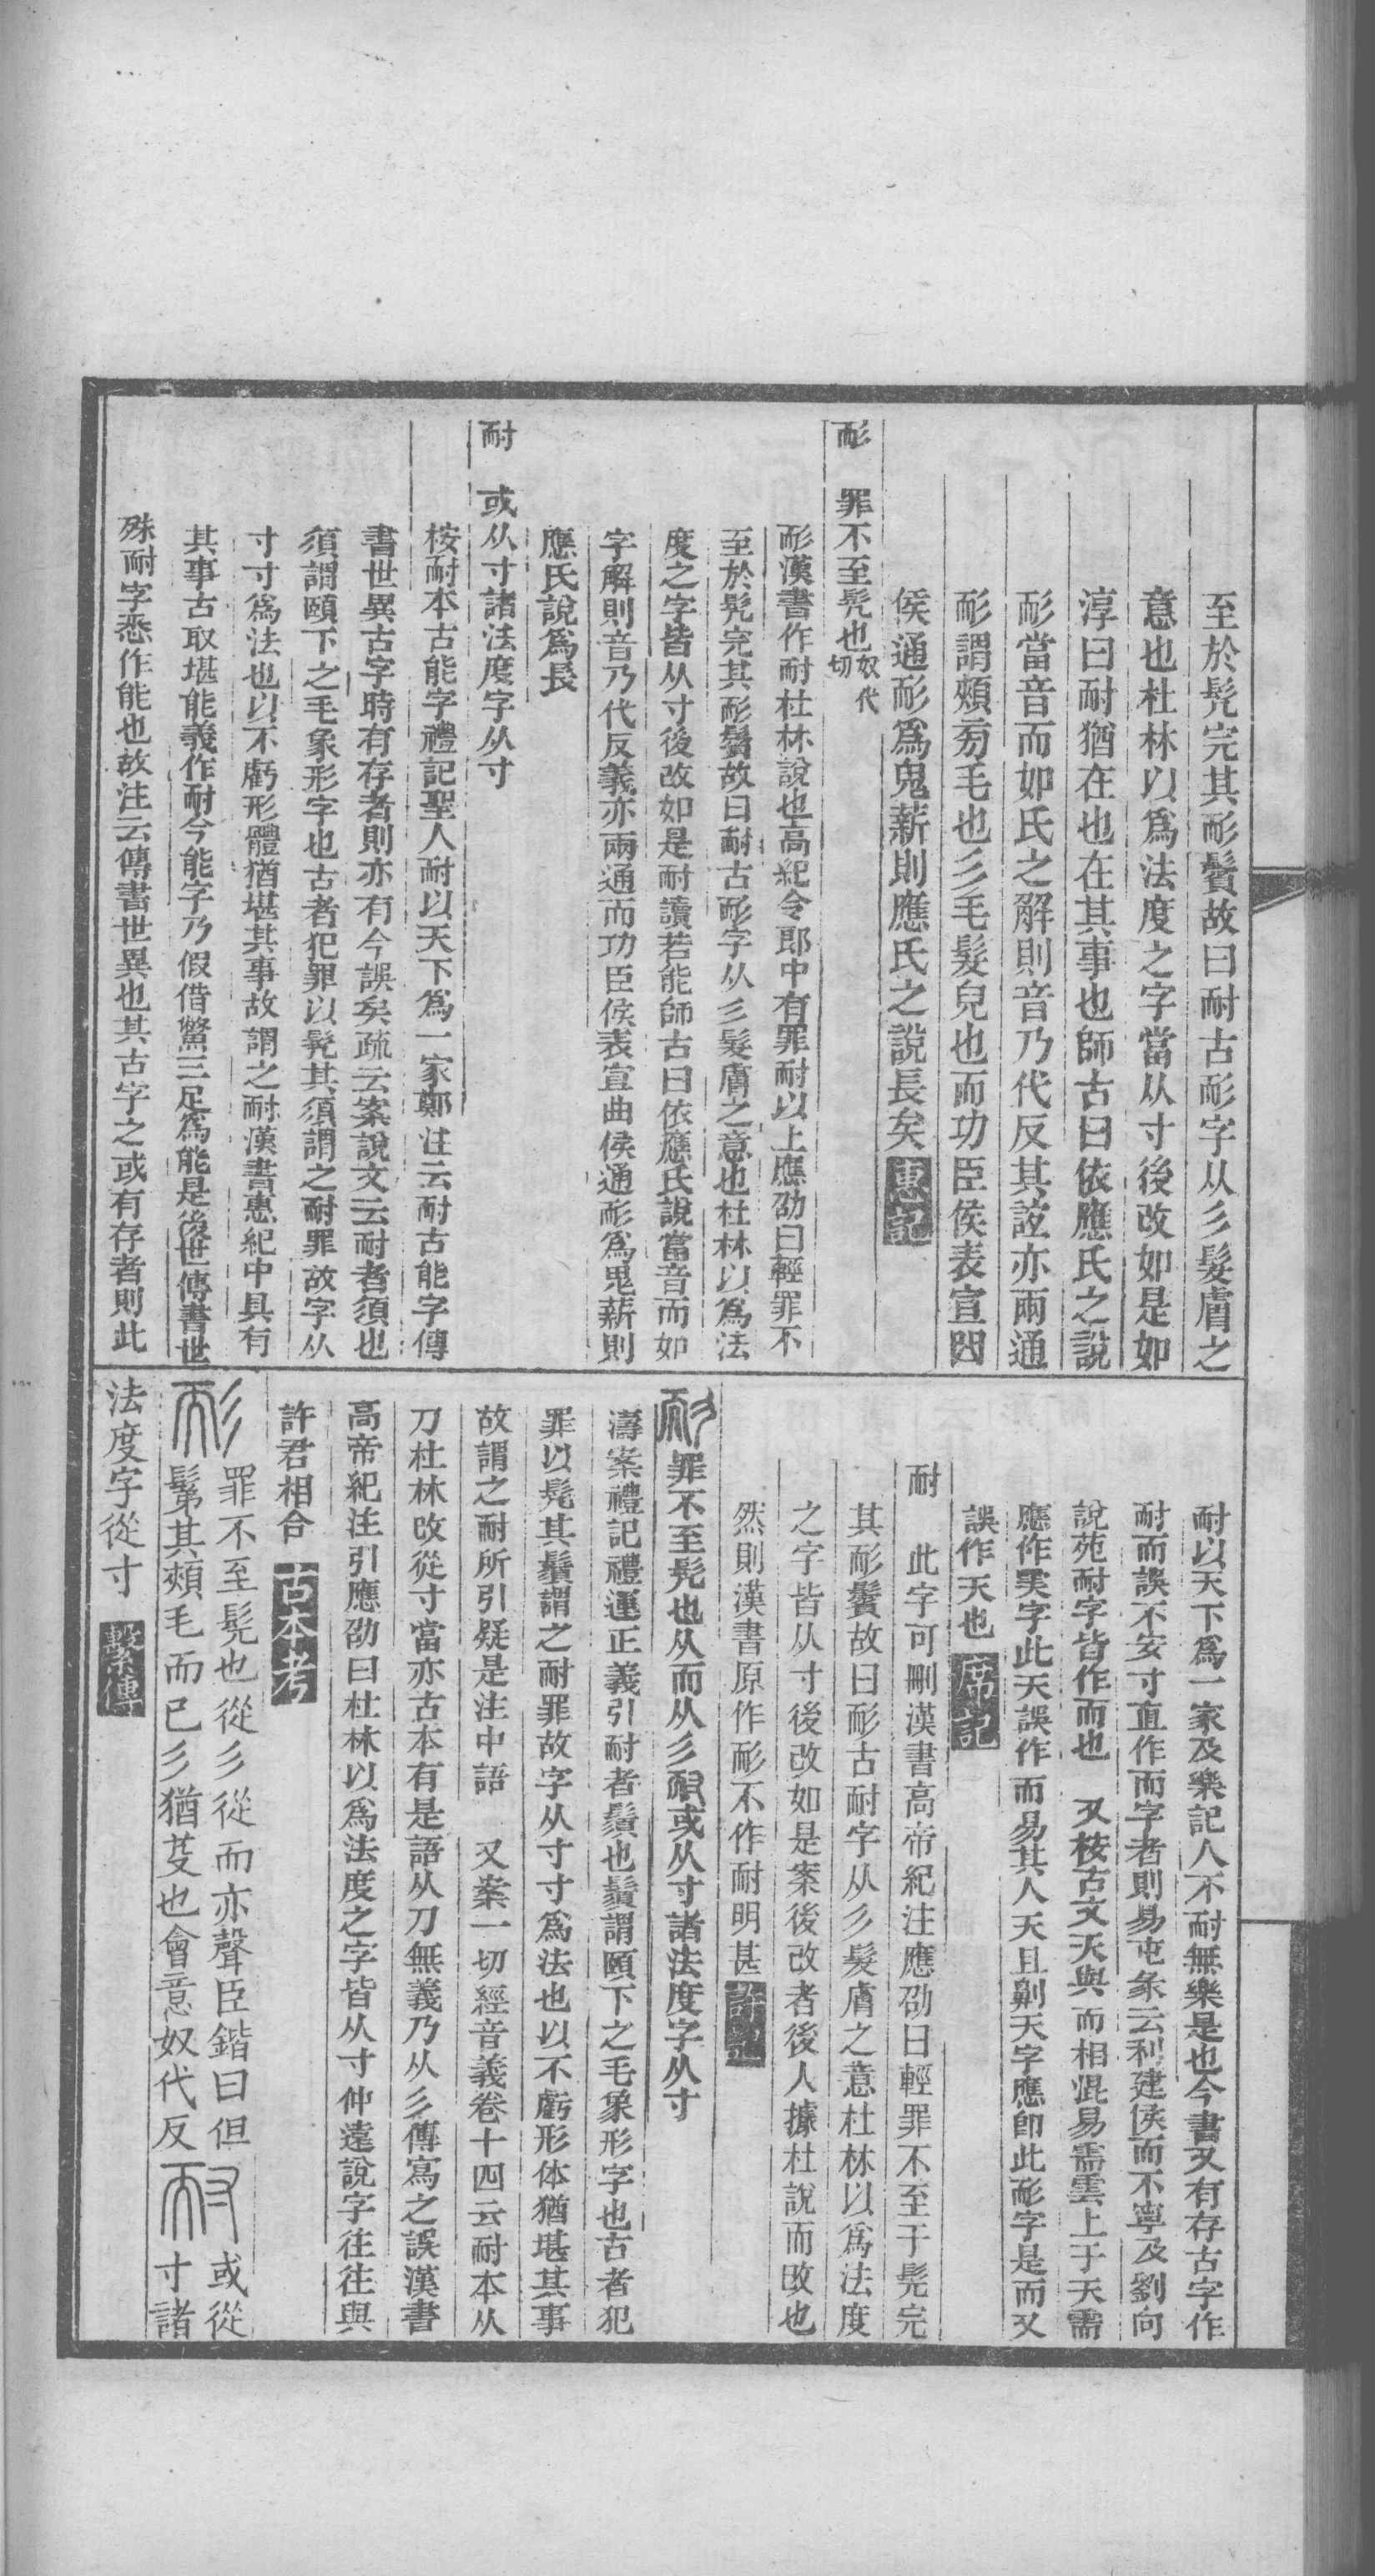 至於髠完其耏鬢故曰耐古耏字从彡髮膚之
意也杜林以爲法度之字當从寸後改如是如
淳曰耐猶在也在其事也師古曰依應氏之說
耏當音而如氏之解則音乃代反其誼亦兩通
耏謂頰旁毛也彡毛髮皃也而功臣侯表宣曲
侯通耏爲鬼薪則應氏之說長矣惠記
耏　罪不至髠也奴代切
耏漢書作耐杜林說也高紀令郎中有罪耐以上應劭曰輕罪不
至於髠完其耏鬢故曰耐古耏字从彡髮膚之意也杜林以爲法
度之字皆从寸後改如是耐讀若能師古曰依應氏說當音而如
字解則音乃代反義亦兩通而功臣侯表宣曲侯通耏爲鬼薪則
應氏說爲長
耐　或从寸諸法度字从寸
桉耐本古能字禮記聖人耐以天下爲一家鄭注云耐古能字傳
書世異古字時有存者則亦有今誤矣疏云案說文云耐者須也
須謂頤下之毛象形字也古者犯罪以髠其須謂之耐罪故字从
寸寸爲法也以不虧形體猶堪其事故謂之耐漢書惠紀中具有
其事古取堪能義作耐今能字乃假借鱉三足爲能是後世傳書世
殊耐字悉作能也故注云傳書世異也其古字之或有存者則此
耐以天下爲一家及樂記人不耐無樂是也今書又有存古字作
耐而誤不安寸直作而字者則易屯彖云利建侯而不寧及劉向
說苑耐字皆作而也　又桉古文天與而相混易需雲上于天需
應作𠕲字此天誤作而易其人天且劓天字應卽此耏字是而又
誤作天也席記
耐　此字可刪漢書高帝紀注應劭曰輕罪不至于髠完
其耏鬢故曰耏古耐字从彡髮膚之意杜林以爲法度
之字皆从寸後改如是案後改者後人據杜說而改也
然則漢書原作耏不作耐明甚
耏罪不至髠也从而从彡耐或从寸諸法度字从寸
濤案禮記禮運正義引耐者鬚也鬚謂頤下之毛象形字也古者犯
罪以髠其鬚謂之耐罪故字从寸寸爲法也以不虧形体猶堪其事
故謂之耐所引疑是注中語　又案一切經音義卷十四云耐本从
刀杜林改從寸當亦古本有是語从刀無義乃从彡傳寫之誤漢書
高帝紀注引應劭曰杜林以爲法度之字皆从寸仲遠說字往往與
許君相合　古本考
耏罪不至髠也從彡從而亦聲臣鍇曰但髵其頰毛而已彡猶芟也會意奴代反耐或從寸諸
法度字從寸　繫傳